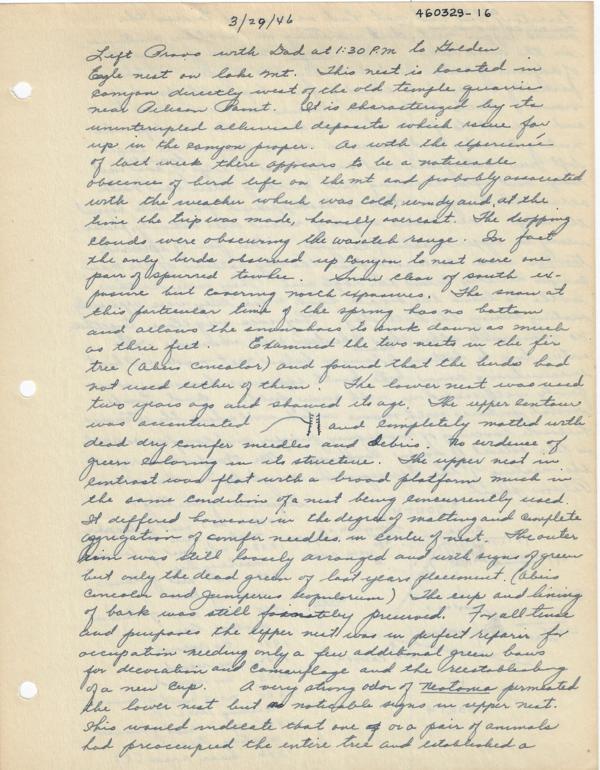 3/29/46
460329-16
Left Provo with Dad at 1:30 P.M to Golden
Eagle nest on lake Mt. This nest is located in
canyon directly west of the old temple quarrie
near Pelican Point. It is characterized by its
uninterupted alluvial deposits which issue far
up in the canyon proper. As with the experience
of last week there appears to be a noticeable
obscence of bird life on the mt and probably associated
with the weather which was cold, windy and, at the
time the trip was made, heavily overcast. The dropping
clouds were obscuring the wasatch range. In fact
the only birds observed up canyon to nest were one
pair of spurred towhee. Snow clear of south ex-
posure but covering north exposures. The snow at
this particular time of the spring has no bottom
and allows the snowshoes to sink down as much
as three feet. Examined the two nests in the fir
tree (Abies concolor) and found that the birds had
not used either of them. The lower nest was used
two years ago and showed its age. The upper contour
was accentuated and completely matted with
dead dry conifer needles and debris. No evidence of
green coloring in its structure. The upper nest in
contrast was flat with a broad platform much in
the same condition of a nest being concurrently used.
It differed however in the degree of matting and complete
aggregation of conifer needles in center of nest. The outer
rim was still loosely arranged and with signs of green
but only the dead green of last years placement. (Abies
concolor and Juniperus scopulorum) The cup and lining
of bark was still preserved. For all tense
and purposes the upper nest was in perfect repair for
occupation needing only a few additional green bows
for decoration and camouflage and the reestablishing
of a new cup. A very strong odor of Neotoma permeated
the lower nest but no noticable signs in upper nest.
This would indicate that one or a pair of animals
had preoccupied the entire tree and established a